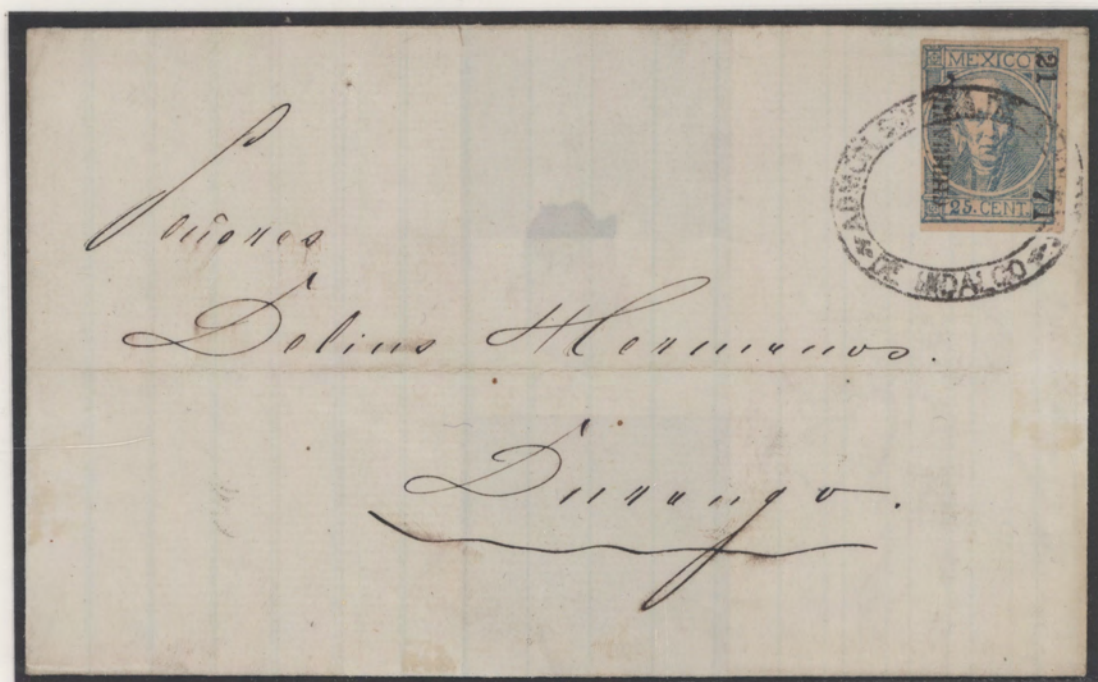 MEXICO
21
CHIHUAHUA
71
25. CENT.
ADMON
DE HIDALGO
Señores
Delius Hermanos.
Durango.